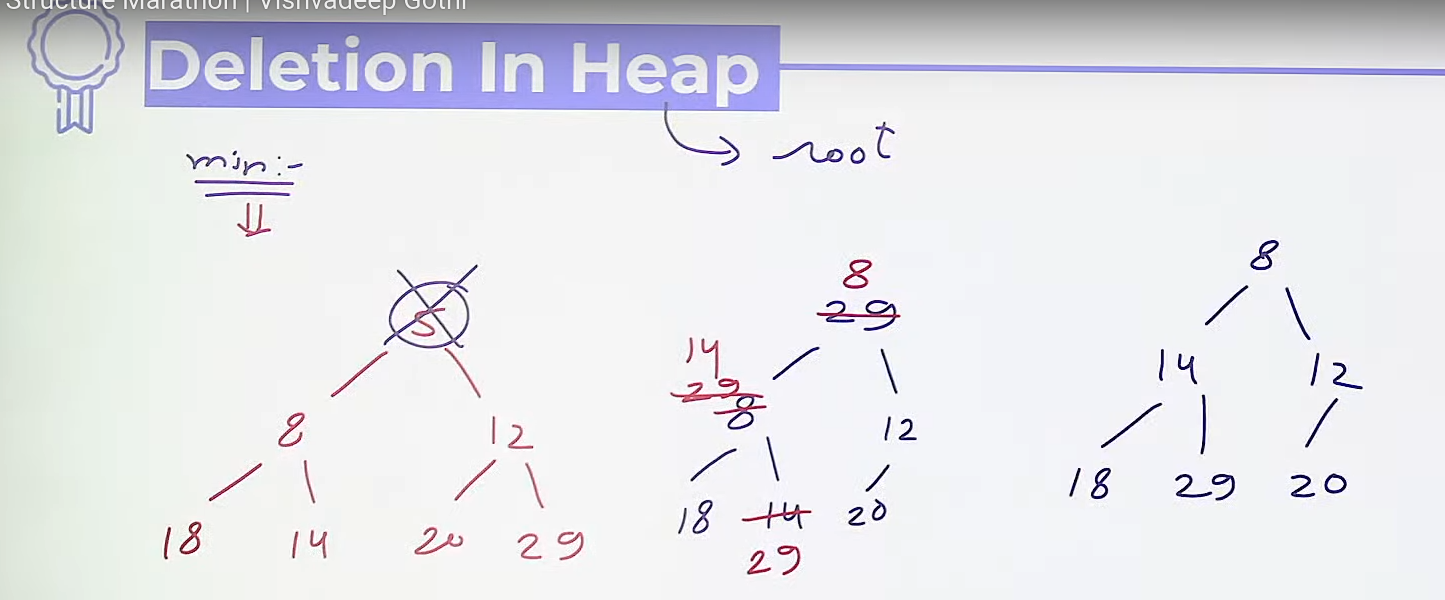 Structure Marathon | Vishvadeep Gothi
Deletion In Heap
root
min:-
5
8 12
18 14 20 29
8
29
14
29
8 12
18 14 20
29
8
14 12
18 29 20